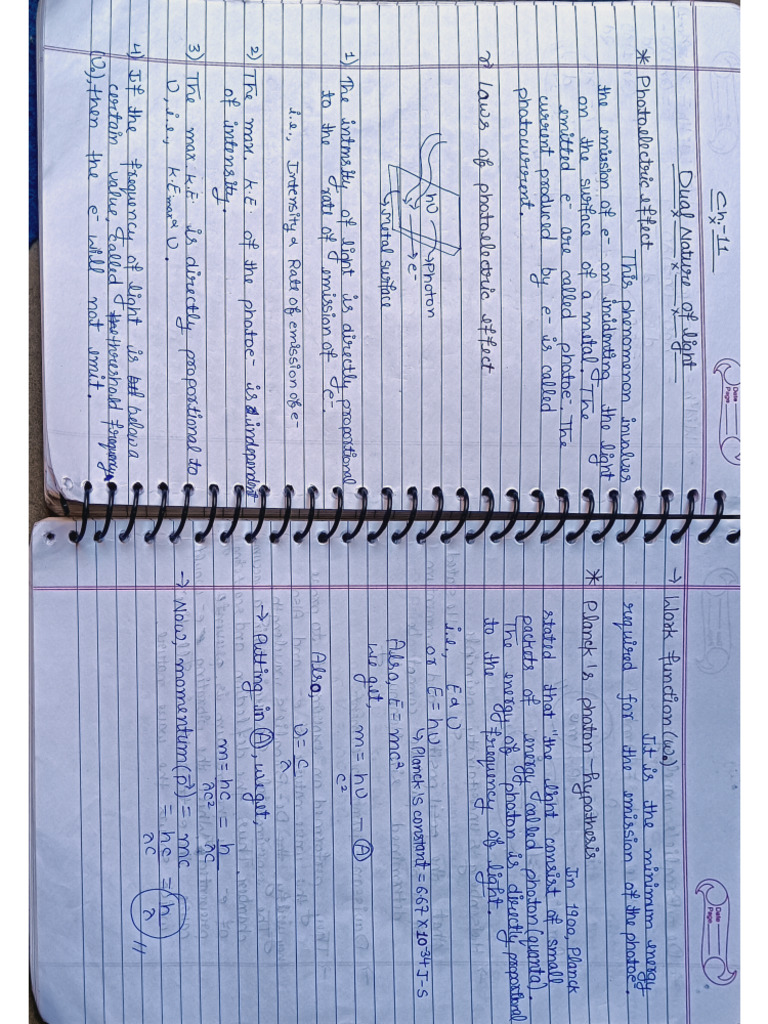 Ch-11
Dual Nature of light
Date
Page
* Photoelectric effect
This phenomenon involves
the emission of e- on incidenting the light
on the surface of a metal. The
emitted e- are called photoe-. The
current produced by e- is called
photocurrent.
Laws of photoelectric effect
hυ
Photon
e-
Metal surface
1) The intensity of light is directly proportional
to the rate of emission of e-.
i.e., Intensity ∝ Rate of emission of e-
2) The max. K.E. of the photoe- is independent
of intensity.
3) The max K.E is directly proportional to
υ, i.e., K.Emax ∝ υ.
4) If the frequency of light is below a
certain value, called threshold frequency
(υ₀), then the e- will not emit.
Date
Page
→ Work function (w₀)
It is the minimum energy
required for the emission of the photoe-.
* Planck's photon hypothesis
In 1900, Planck
stated that "the light consist of small
packets of energy called photon (quanta).
The energy of photon is directly proportional
to the frequency of light.
i.e., E ∝ υ
or E = hυ
↳ Planck's constant = 6.67 × 10-34 J-S
Also, E = mc²
We get,
m = hυ/c² - Ⓐ
Also,
υ = c/λ
→ Putting in Ⓐ, we get,
m = hc/λc² = h/λc
→ Now, momentum (p→) = mc
= hc/λc = h/λ //